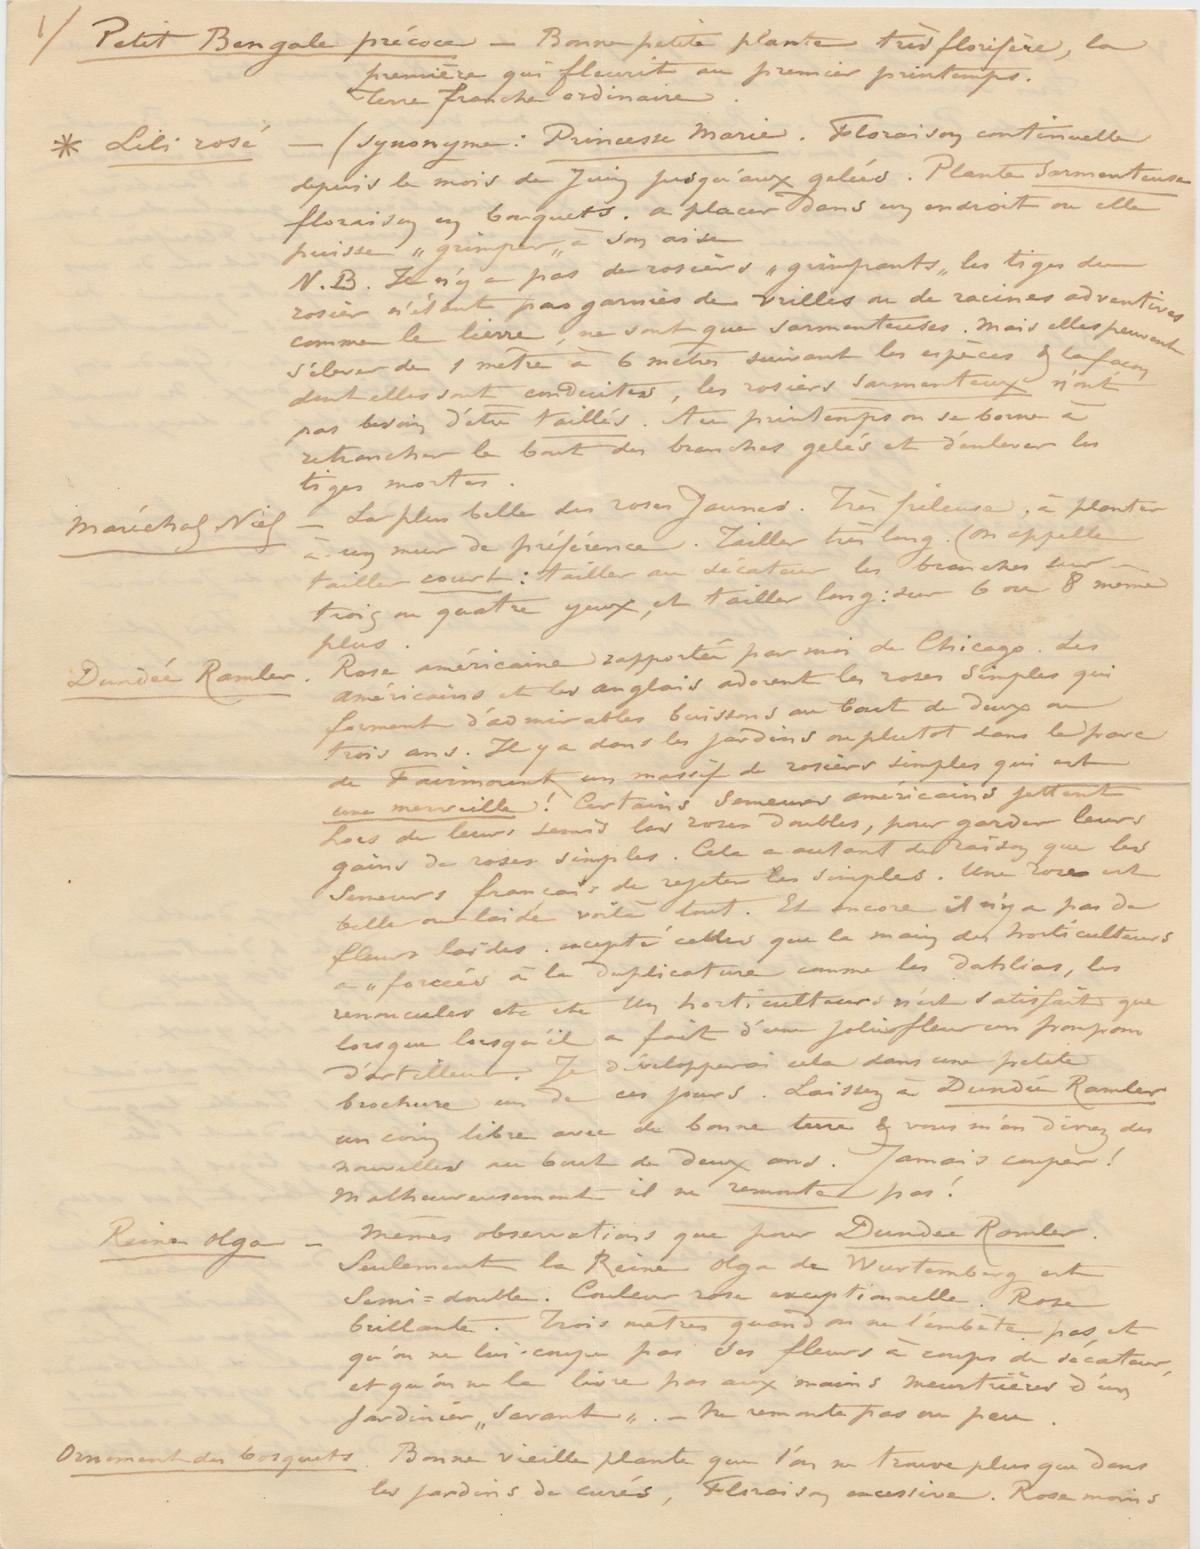 1/ Petit Bengale précoce — Bonne petite plante très florifère, la
première qui fleurit au premier printemps.
Terre franche ordinaire.
* Lili rosé — (synonyme : Princesse Marie. Floraison continuelle
depuis le mois de Juin jusqu'aux gelées. Plante sarmenteuse
floraison en bouquets. a placer dans un endroit ou elle
puisse „grimper„ à son aise
N.B. Il n'y a pas de rosiers „grimpants„ les tiges du
rosier n'étant pas garnies de vrilles ou de racines adventives
comme le lierre, ne sont que sarmenteuses. Mais elles peuvent
s'élever de 1 mètre à 6 mètres suivant les espèces & la façon
dont elles sont conduites, les rosiers sarmenteux n'ont
pas besoin d'être taillés. Au printemps on se borne à
retrancher le bout des branches gelés et d'enlever les
tiges mortes.
Maréchal Niel — La plus belle des roses Jaunes. Très frileuse, à planter
à un mur de préférence. Tailler très long. (On appelle
tailler court : tailler au sécateur les branches sur
trois ou quatre yeux, et tailler long : sur 6 ou 8 même
plus.
Dundée Rambler. Rose américaine rapportée par moi de Chicago. Les
américains et les anglais adorent les roses simples qui
forment d'admirables buissons au bout de deux ou
trois ans. Il y a dans les jardins ou plutot dans le parc
de Fairmount un massif de rosiers simples qui est
une merveille ! Certains semeurs américains jettent
hors de leurs semis les roses doubles, pour garder leurs
gains de roses simples. Cela a autant de raison que les
semeurs français de rejeter les simples. Une rose est
belle ou laide voilà tout. Et encore il n'y a pas de
fleurs laides. excepté celles que la main des horticulteurs
a „forcées à la duplicature comme les dahlias, les
renoncules etc etc Un horticulteurs n'est satisfait que
lorsque lorsqu'il a fait d'une jolie fleur un pompon
d'artilleur. Je développerai cela dans une petite
brochure un de ces jours. Laissez à Dundée Rambler
un coin libre avec de bonne terre & vous m'en direz des
nouvelles au bout de deux ans. Jamais couper !
Malheureusement il ne remonte pas !
Reine Olga — Mêmes observations que pour Dundee Rambler.
Seulement la Reine Olga de Wurtemberg est
Semi=double. Couleur rose exceptionnelle. Rose
brillante. Trois mètres quand on ne l'embête pas et
qu'on ne lui coupe pas ses fleurs à coups de sécateur,
et qu'on ne la livre pas aux mains meurtrières d'un
jardinier „savant„. — Ne remonte pas ou peu.
Ornement des bosquets. Bonne vieille plante que l'on ne trouve plus que dans
les jardins de curés, Floraison excessive. Rose moins